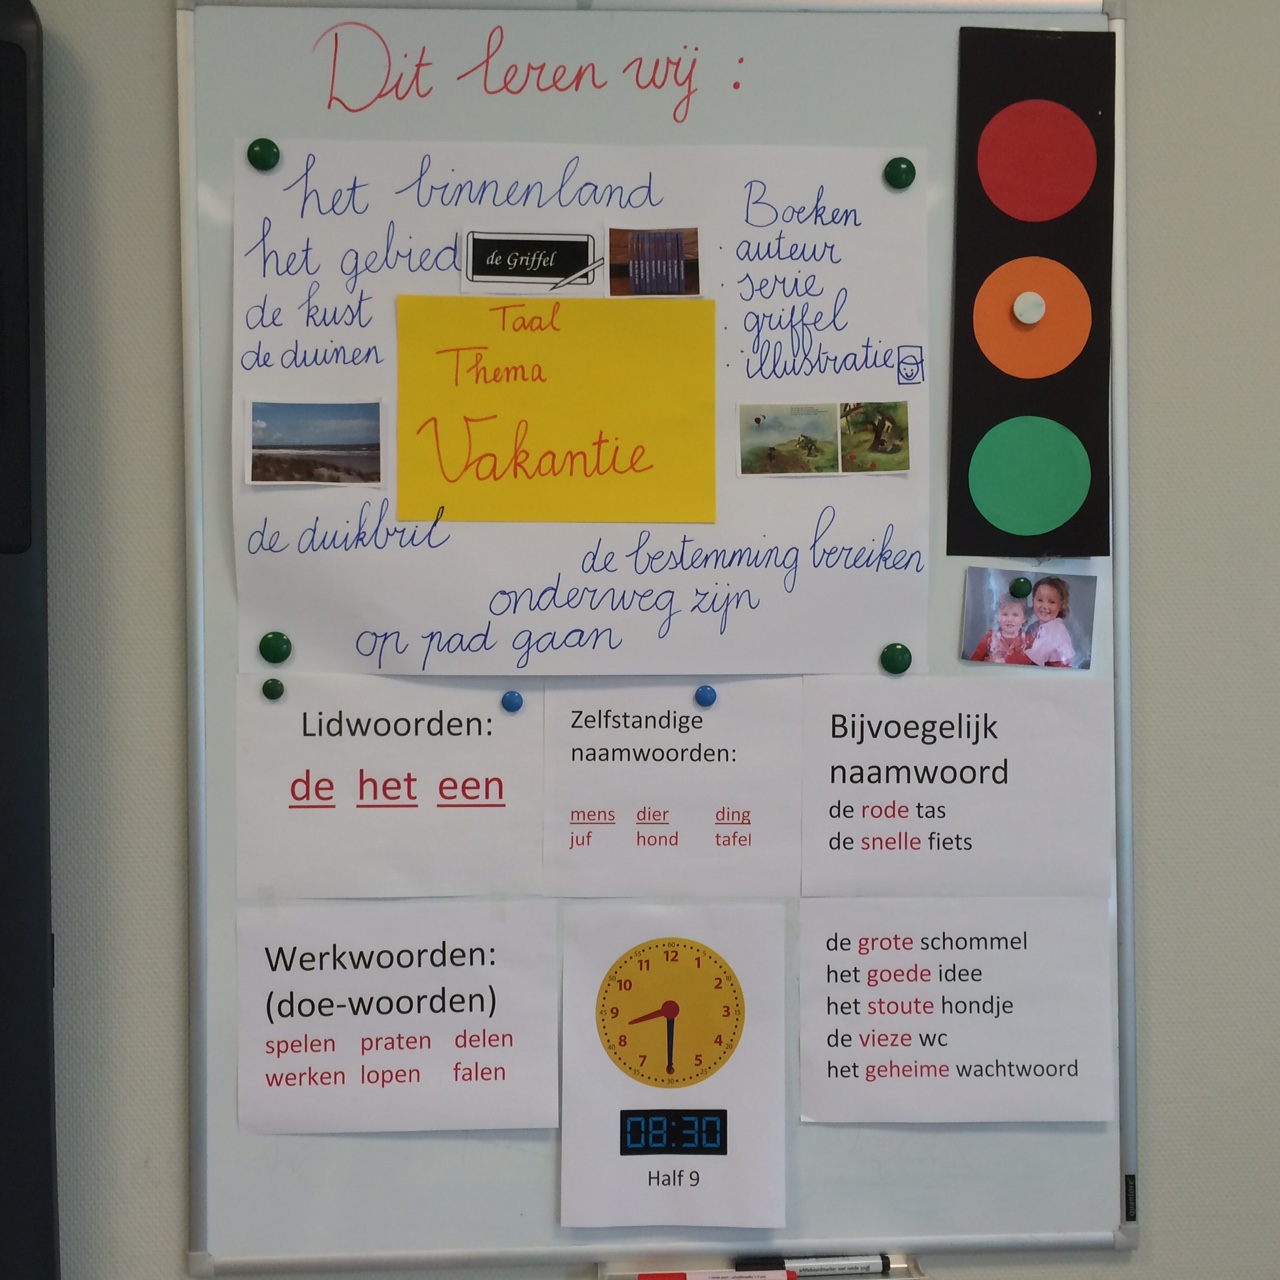 Dit leren wij :
het binnenland
het gebied
de kust
de duinen
de Griffel
Boeken
· auteur
· serie
· griffel
· illustratie
Taal
Thema
Vakantie
de duikbril
de bestemming bereiken
onderweg zijn
op pad gaan
Lidwoorden:
de het een
Zelfstandige
naamwoorden:
mens dier ding
juf hond tafel
Bijvoegelijk
naamwoord
de rode tas
de snelle fiets
Werkwoorden:
(doe-woorden)
spelen praten delen
werken lopen falen
12
1
2
3
4
5
7
8
9
10
11
08:30
Half 9
de grote schommel
het goede idee
het stoute hondje
de vieze wc
het geheime wachtwoord
quantore